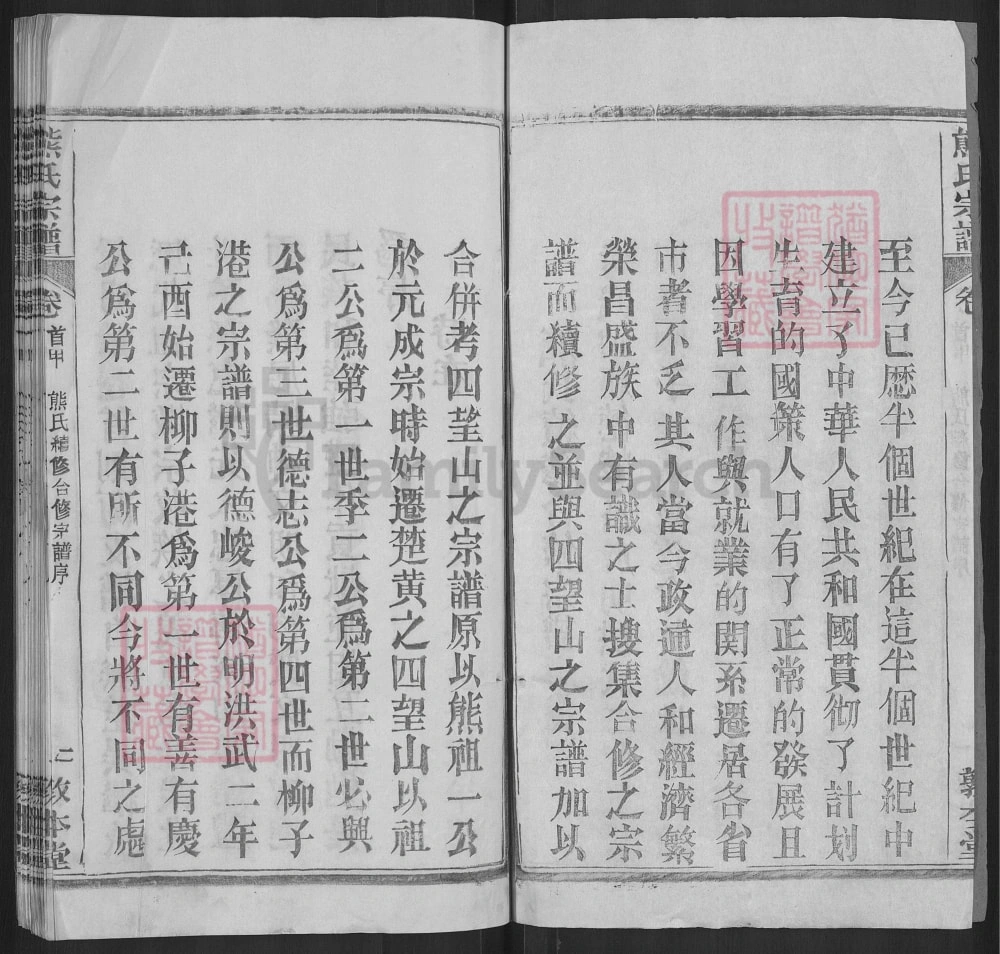 熊氏宗譜
卷
至今已歷半個世紀在這半個世紀中
建立了中華人民共和國貫彻了計划
生育的國策人口有了正常的發展且
因學習工作與就業的関系遷居各省
市者不乏其人當今政通人和經濟繁
榮昌盛族中有識之士搜集合修之宗
譜而續修之並與四望山之宗譜加以
合併考四望山之宗譜原以熊祖一公
於元成宗時始遷楚黃之四望山以祖
二公爲第一世季二公爲第二世必興
公爲第三世德志公爲第四世而柳子
港之宗譜則以德峻公於明洪武二年
己酉始遷柳子港爲第一世有善有慶
公爲第二世有所不同今將不同之處
熊氏宗譜
卷首甲
熊氏續修合修宗譜序
二
敦本堂
FamilySearch